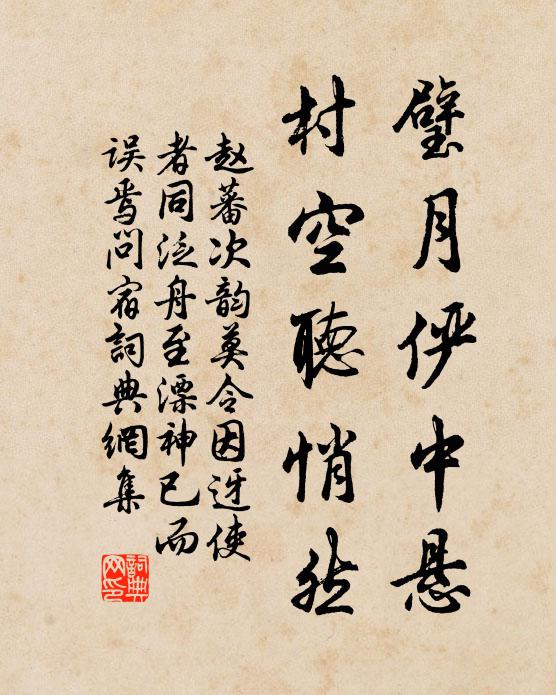 璧月俨中悬
村空聽悄然
赵蕃次韵莫令因迓使
者同泛舟至漂神已而
误焉问宿詞典網集
詞典网印